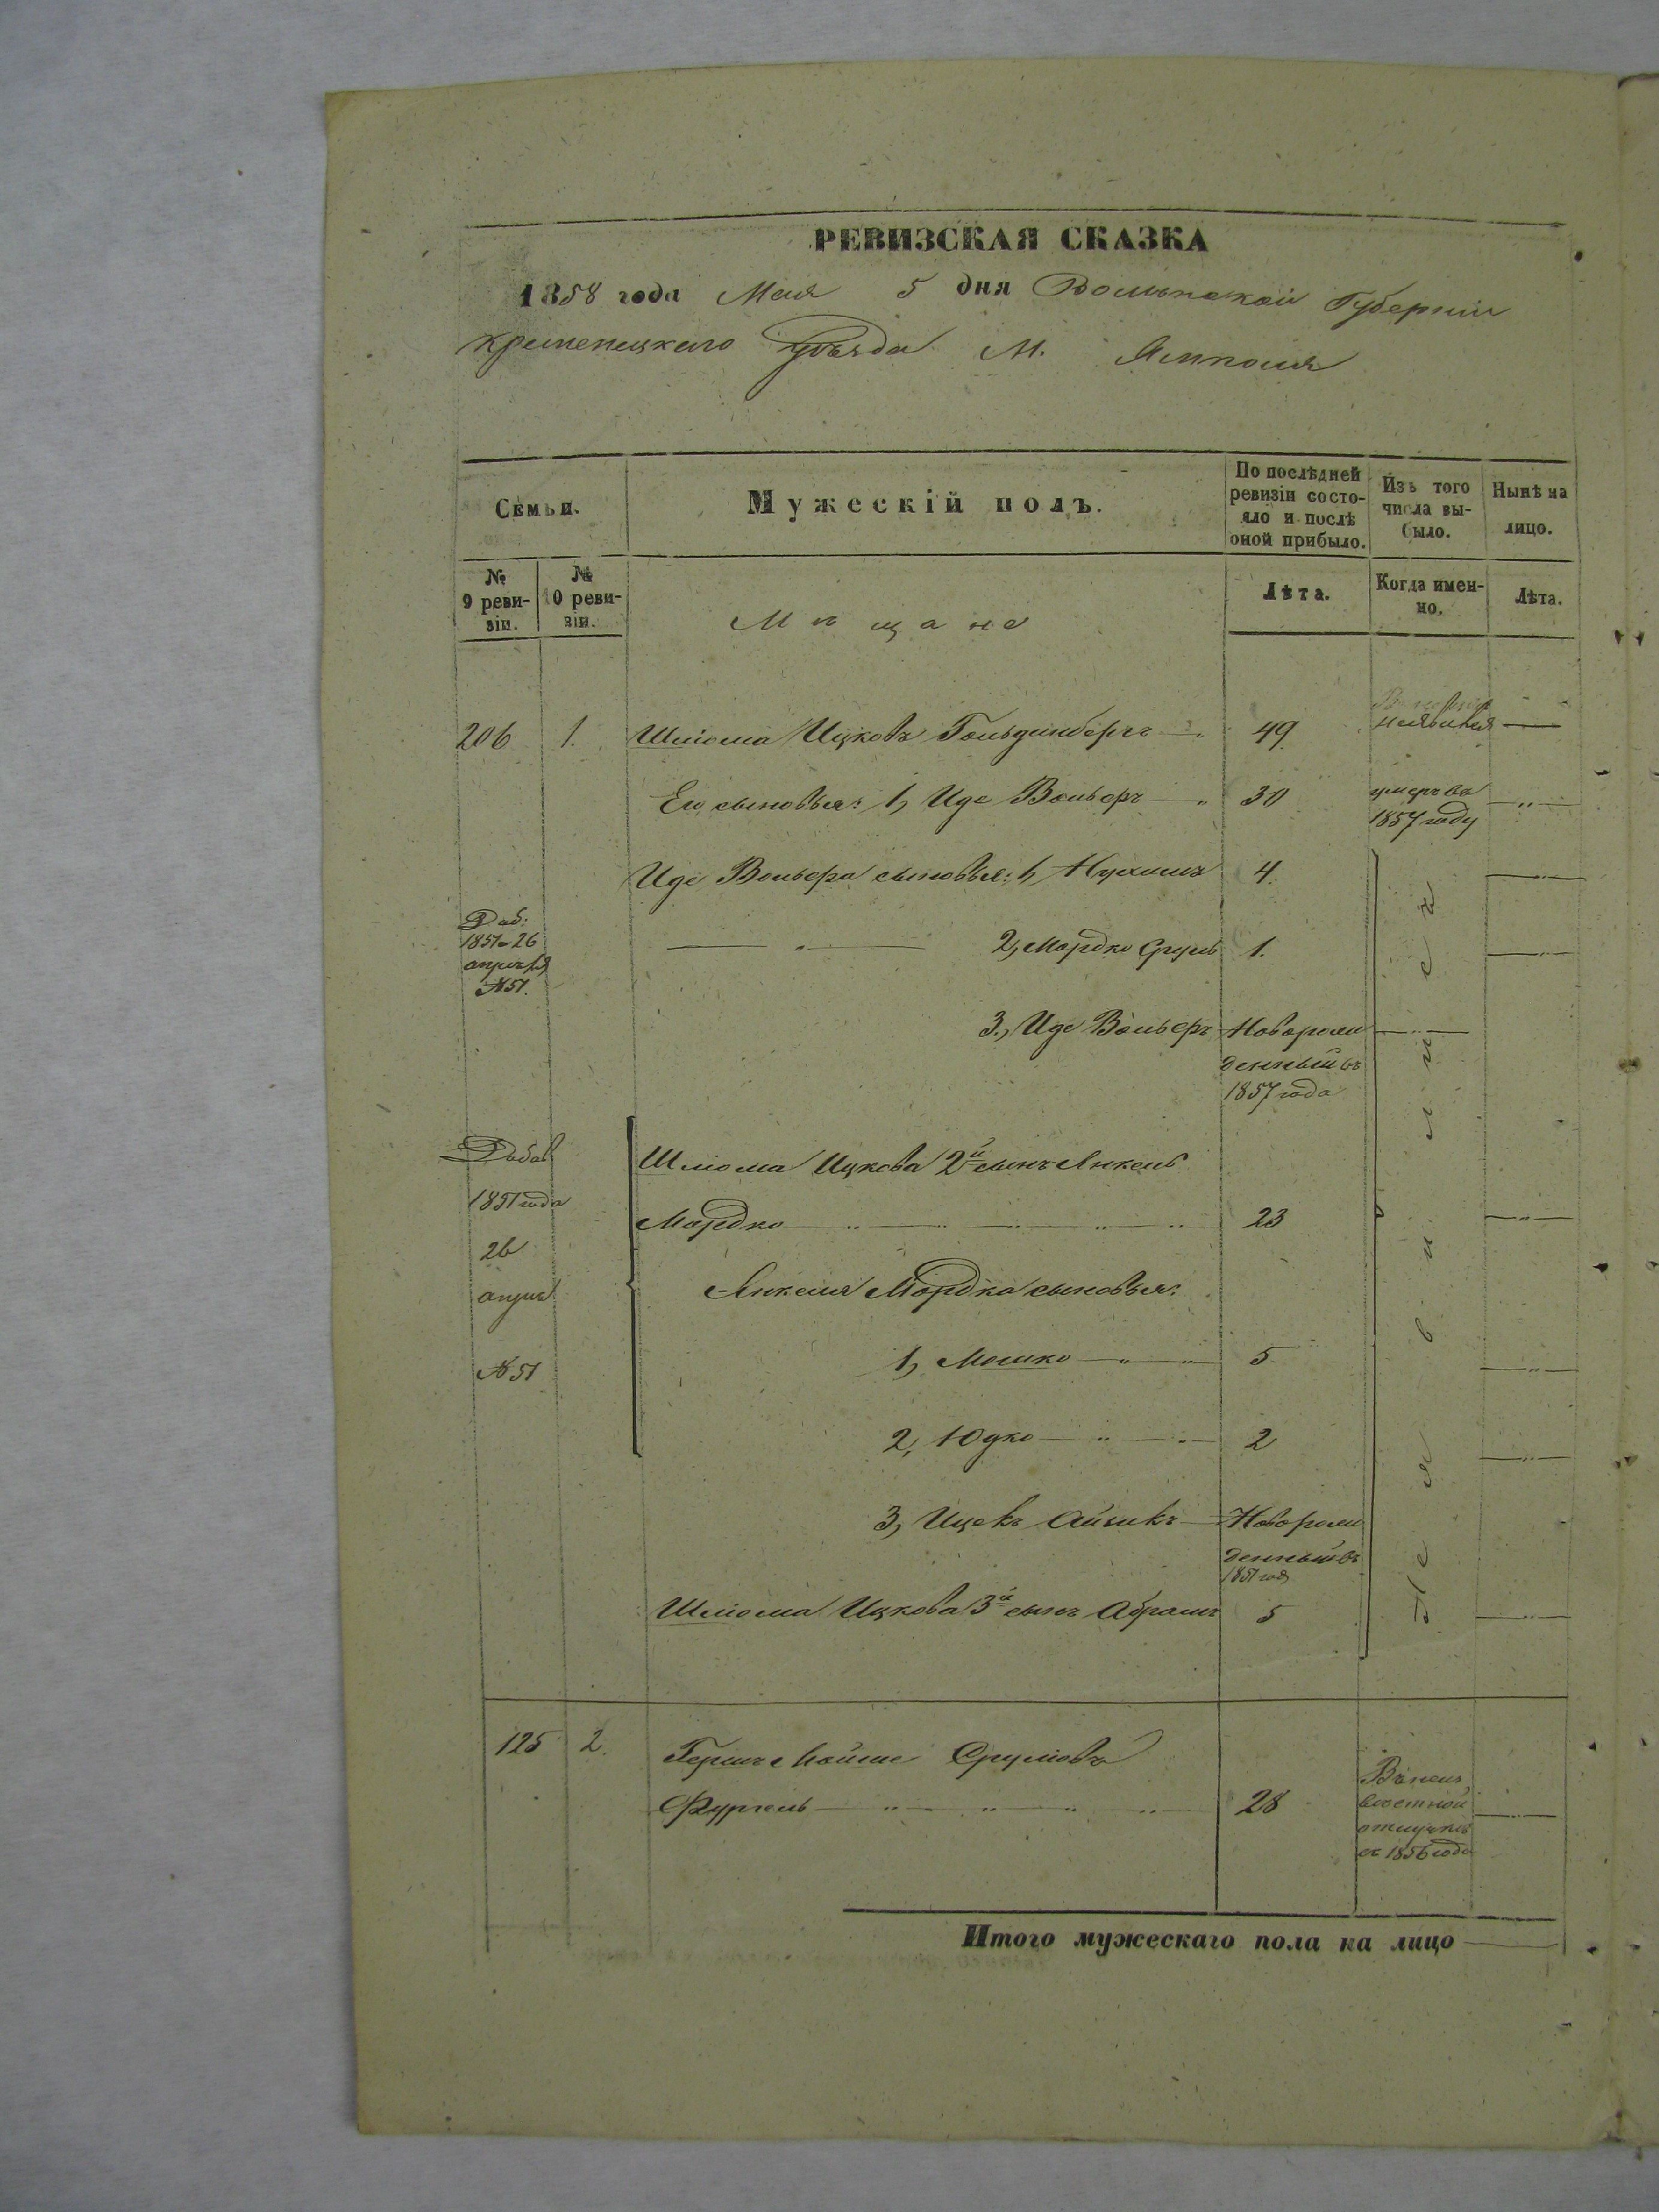 РЕВИЗСКАЯ СКАЗКА
1858 года Мая 5 дня Волынской Губернии
Кременецкаго уѣзда М. Ямполя
Семьи.
Мужескій полъ.
По послѣдней ревизіи состояло и послѣ оной прибыло.
Изъ того числа выбыло.
Нынѣ на лицо.
№ 9 ревизіи.
№ 10 ревизіи.
Мѣщане
Лѣта.
Когда именно.
Лѣта.
206 1. Шлiома Ицковъ Гольдинбергъ 49 неявился
Его сыновья: 1, Иде Вольферъ 30 умеръ въ
1857 году
Иде Вольфера сыновья: 1, Нухимъ 4.
Доб:
1851 26
апрѣля
№ 51.
2, Мордко Сруль 1.
3., Иде Вольферъ Новорож
денный въ
1857 года
Добав
1851 года
26
апрѣл
№ 51
Шлiома Ицкова 2й сынъ Янкель
Мордко 23
Янкеля Мордка сыновья:
1, Мошко 5
2, Юдко 2
3, Ицекъ Айзикъ Новорож
денный въ
1851 год
Шлiома Ицкова 3й сынъ Абрамъ 5
Не явились
125 2. Гершъ Сруліовъ
28
отлучкѣ
съ 1856 года
Итого мужескаго пола на лицо